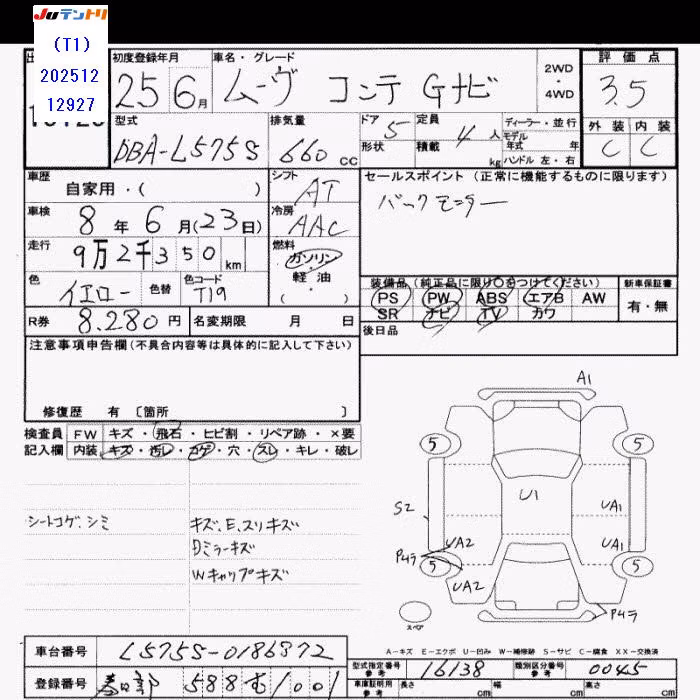 JUテントリ
(T1)
202512
12927
初度登録年月
25 6月
車名・グレード
ムーヴ コンテ Gナビ
2WD・4WD
評価点
3.5
外装 内装
C C
型式
DBA-L575S
排気量
660 cc
ドア 5
形状
定員 4人
積載 kg
ディーラー・並行
モデル年式 年
ハンドル 左・右
車歴
自家用・( )
シフト
AT
セールスポイント(正常に機能するものに限ります)
バックモニター
車検 8年6月(23日)
冷房
AAC
走行 9万2千350km
燃料
ガソリン
軽油
(・)
色 イエロー 色替
色コード T19
装備品(純正品に限り○をつけてください)
PS PW ABS エアB AW
SR ナビ TV カワ
新車保証書
有・無
R券 8,280円 名変期限 月 日
後日品
注意事項申告欄(不具合内容等は具体的に記入して下さい)
修復歴 有 〔箇所 〕
検査員記入欄
FW キズ・飛石・ヒビ割・リペア跡・×要
内装 キズ・汚レ・コゲ・穴・スレ・キレ・破レ
シートコゲ、シミ
キズ、E、スリキズ
Dミラーキズ
Wキャップキズ
A1
5 5
U1
S2
UA1
UA2 UA1
Pムラ
5 5
UA2
Pムラ
スペア
A-キズ E-エクボ U-凹み W-補修跡 S-サビ C-腐食 XX-交換済
車台番号 L575S-0186372
型式指定番号 参考 16138
類別区分番号 参考 0045
登録番号 春日部 588 む 1001
車庫証明用 参考 長さ cm 幅 cm 高さ cm